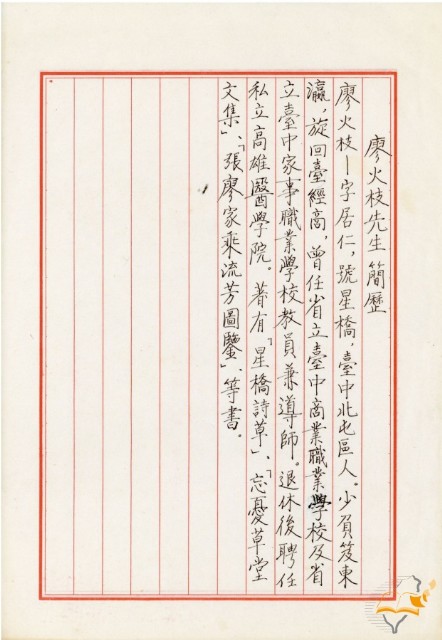 廖火枝先生簡歷
廖火枝—字居仁,號星橋,臺中北屯區人。少負笈東
瀛,旋回臺經商,曾任省立臺中商業職業學校及省
立臺中家事職業學校教員兼導師。退休後聘任
私立高雄醫學院。著有「星橋詩草」、「忘憂草堂
文集」、「張廖家乘流芳圖鑒」、等書。